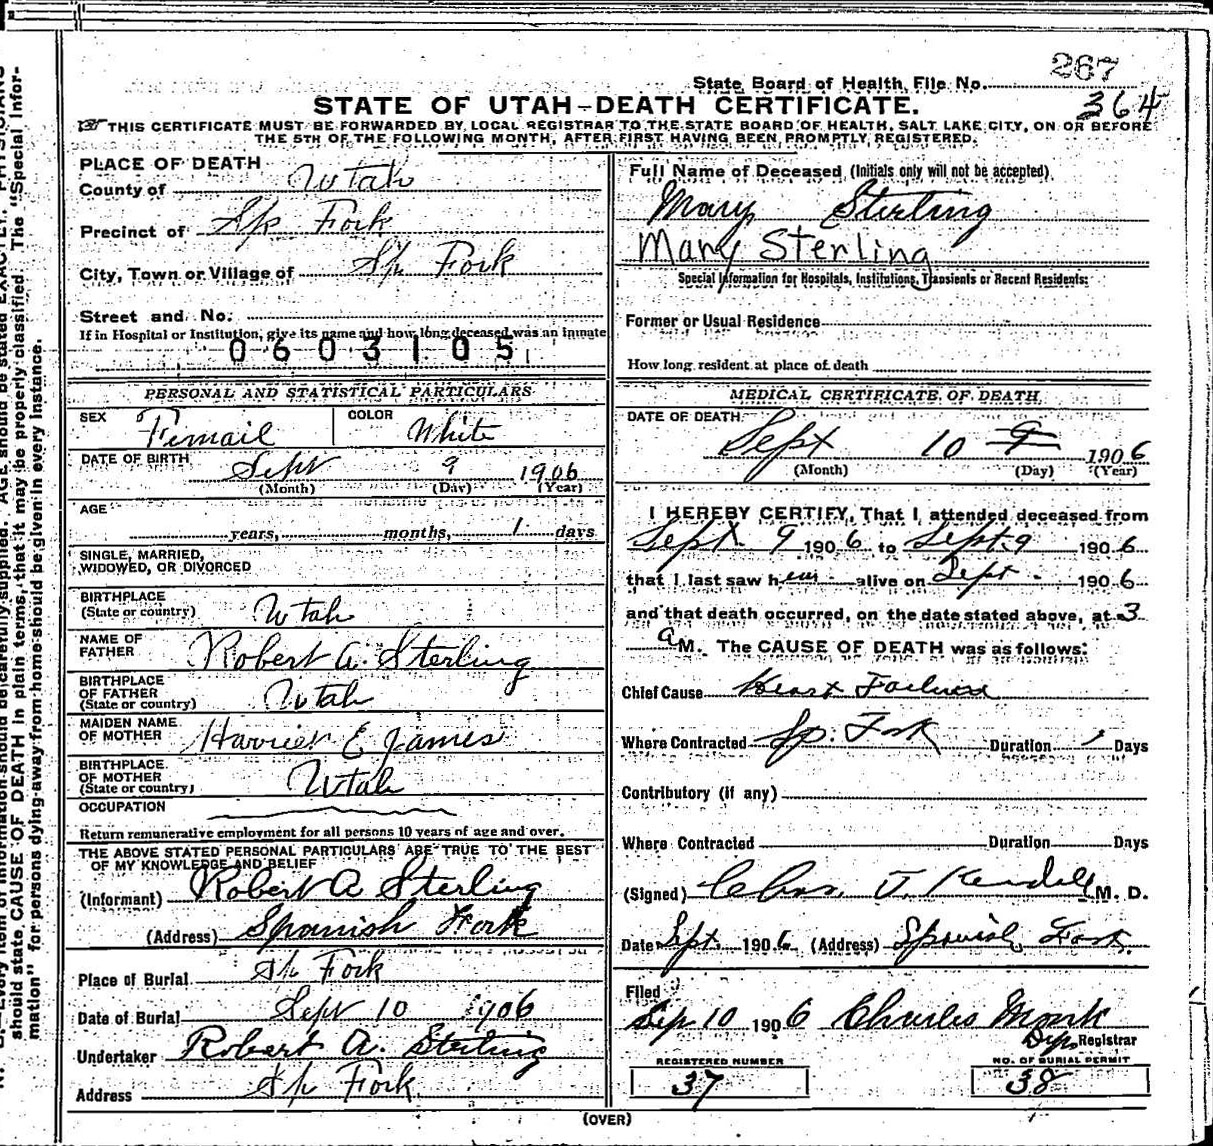 267
State Board of Health, File No. 364
STATE OF UTAH—DEATH CERTIFICATE.
THIS CERTIFICATE MUST BE FORWARDED BY LOCAL REGISTRAR TO THE STATE BOARD OF HEALTH, SALT LAKE CITY, ON OR BEFORE
THE 5TH OF THE FOLLOWING MONTH, AFTER FIRST HAVING BEEN PROMPTLY REGISTERED.
PLACE OF DEATH
County of Utah
Precinct of S/p Fork
City, Town or Village of S/p Fork
Street and No.
If in Hospital or Institution, give its name and how long deceased was an inmate
0603105
PERSONAL AND STATISTICAL PARTICULARS
SEX Femail COLOR White
DATE OF BIRTH Sept 9 1906
(Month) (Day) (Year)
AGE
years, months, 1 days
SINGLE, MARRIED,
WIDOWED, OR DIVORCED
BIRTHPLACE
(State or country) Utah
NAME OF
FATHER Robert A. Sterling
BIRTHPLACE
OF FATHER
(State or country) Utah
MAIDEN NAME
OF MOTHER Harriet E James
BIRTHPLACE
OF MOTHER
(State or country) Utah
OCCUPATION
Return remunerative employment for all persons 10 years of age and over.
THE ABOVE STATED PERSONAL PARTICULARS ARE TRUE TO THE BEST
OF MY KNOWLEDGE AND BELIEF
(Informant) Robert A Sterling
(Address) Spanish Fork
Place of Burial S/p Fork
Date of Burial Sept 10 1906
Undertaker Robert A. Sterling
Address S/p Fork
Full Name of Deceased (Initials only will not be accepted)
Mary Sterling
Mary Sterling
Special Information for Hospitals, Institutions, Transients or Recent Residents:
Former or Usual Residence
How long resident at place of death
MEDICAL CERTIFICATE OF DEATH
DATE OF DEATH
Sept 10 9 1906
(Month) (Day) (Year)
I HEREBY CERTIFY, That I attended deceased from
Sept 9 1906 to Sept 9 1906
that I last saw her alive on Sept 1906
and that death occurred, on the date stated above, at 3
a M. The CAUSE OF DEATH was as follows:
Chief Cause Heart Failure
Where Contracted Sp. Fork Duration 1 Days
Contributory (if any)
Where Contracted Duration Days
(Signed) Chas. J. Kendell M. D.
Date Sept. 1906 (Address) Spanish Fork
Filed
Sep 10 1906 Charles Monk
Dep Registrar
REGISTERED NUMBER
37
NO. OF BURIAL PERMIT
38
(OVER)
should state CAUSE OF DEATH in plain terms, that it may be properly classified. The "Special Infor-
mation" for persons dying away from home should be given in every instance.